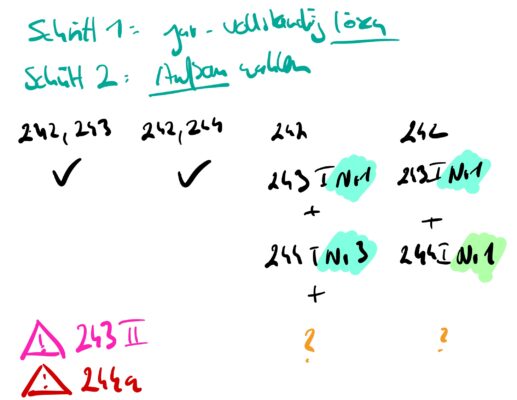 Schritt 1: gut-vollständig lösen
Schritt 2: Aufbau wählen
242, 243 242, 244 242 242
243 I Nr. 1 243 I Nr. 1
+ +
244 I Nr. 3 244 I Nr. 1
+
? ?
! 243 II
! 244a